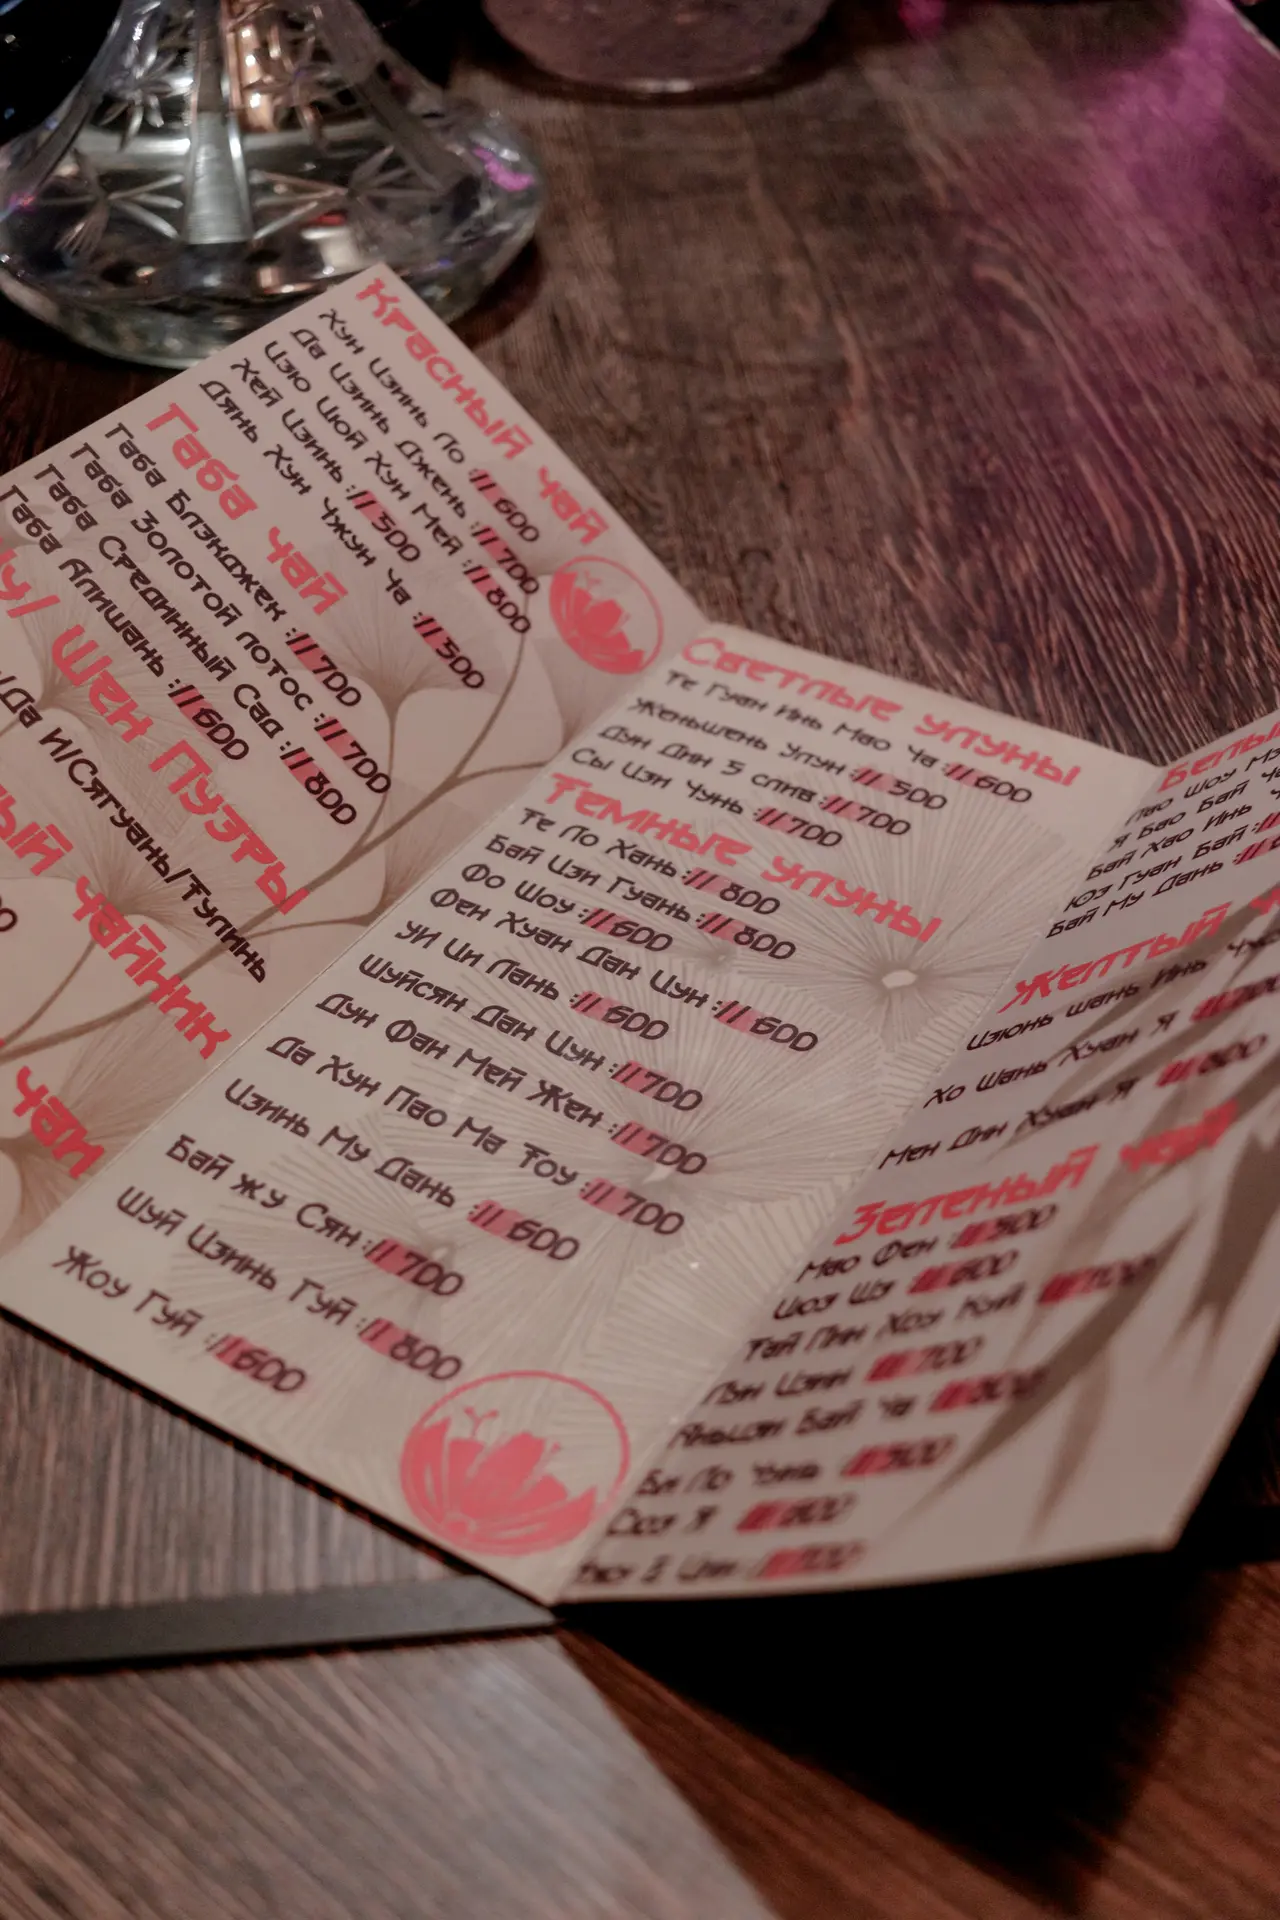 Красный чай
Хун Цзинь Ло :// 600
Да Цзинь Джень :// 700
Цзю Цюй Хун Мей :// 800
Хей Цзинь :// 500
Дянь Хун Чжун Ча :// 500
Габа чай
Габа Блэкджек :// 700
Габа Золотой лотос :// 700
Габа Срединный Сад :// 800
Габа Алишань :// 600
Шен Пуэры
Да И/Сягуань/Тулинь
чайник
чай
Светлые улуны
Те Гуан Инь Мао Ча :// 600
Женьшень Улун :// 500
Дун Дин 5 слив :// 700
Сы Цзи Чунь :// 700
Темные улуны
Те Ло Хань :// 800
Бай Цзи Гуань :// 800
Фо Шоу :// 600
Фен Хуан Дан Цун :// 600
Уи Ци Лань :// 600
Шуйсян Дан Цун :// 700
Дун Фан Мей Жен :// 700
Да Хун Пао Ма Тоу :// 700
Цзинь Му Дань :// 600
Бай Жу Сян :// 700
Шуй Цзинь Гуй :// 800
Жоу Гуй :// 600
Лао Шоу
Я Бао Бай
Бай Хао Инь
Юэ Гуан Бай ://
Бай Му Дань ://
Желтый
Цзюнь Шань Инь
Хо Шань Хуан Я
Мен Дин Хуан Я // 600
Зеленый чай
Мао Фен // 500
Цюэ Шэ // 600
Тай Пин Хоу Куй
Лун Цзин // 700
Аньцзи Бай Ча
Би Ло Чунь
Сюэ Я